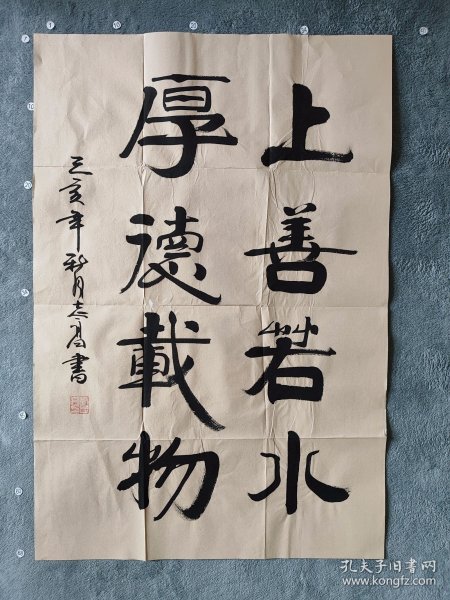 上善若水
厚德載物
己亥年秋月志高書
孔夫子旧书网
www.kongfz.com